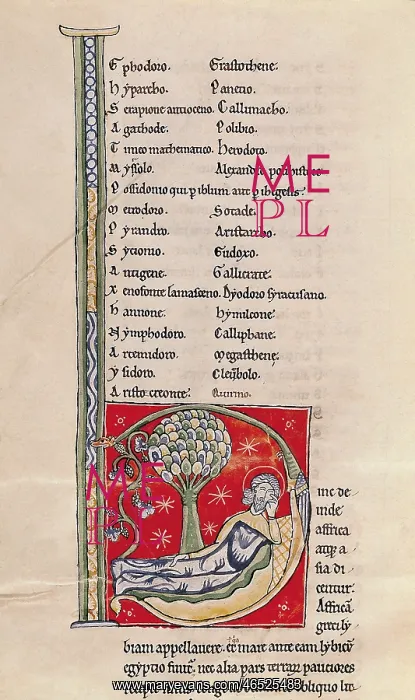 Ephodoro. Erastothene.
hyparcho. Panetio.
Serapione antioceno. Callimacho.
Agathode. Polibio.
Timeo mathematico. herodoto.
Possidonio qui
Metrodoro. Sotade.
Aristarcho.
Sycionio. Eudoxo.
Antigene. Gallicrate.
Xenofonte lamasceno. Dyodoro syracusano.
hannone. hymilcone.
Nymphodoro. Calliphane.
Artemidoro. Megasthene.
ysidoro. Cleubolo.
Aristocreonte.
inc de
inde
affrica
atque a
sia di
centur.
Affricā
greci ly
biam appellavere. mare ante eam lybicū
egyptio nec alia pars terrarum pauciores
MEPL
MEPL
www.maryevans.com/46525483